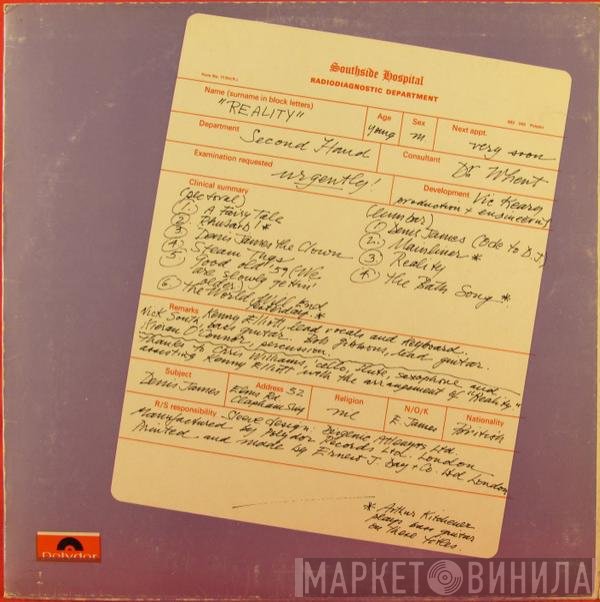 Southside Hospital
RADIODIAGNOSTIC DEPARTMENT
Name (surname in block letters)
"REALITY"
Age
young
Sex
m.
Next appt.
very soon
Department
Second Hand
Consultant
Dr Whent
Examination requested
urgently!
Development Vic Keary
production + engineering
Clinical summary
(pectoral)
1. A Fairy Tale
2. Rhubarb! *
3. Denis James the Clown
4. Steam Tugs
5. Good old '59 (We
are slowly gettin'
older)
6. The World Will End
Yesterday. *
(lumbar)
1. Denis James (Ode to D.J)
2. Mainliner *
3. Reality
4. The Bath Song *
Remarks Kenny Elliott, lead vocals and keyboard.
Nick South, bass guitar. Bob Gibbons, lead guitar.
Kieran O'Connor, percussion.
Thanks to Chris Williams, cello, flute, saxophone and
assisting Kenny Elliott with the arrangement of "Reality"
Subject
Denis James
Address 52
Elms Rd
Clapham
Religion
nil
N/O/K
E. James
Nationality
British
R/S responsibility Sleeve design: Attempts Ltd.
Manufactured by Polydor Records Ltd. London
Printed and made by Ernest J. Day + Co. Ltd London
* Arthur Kitchener
plays bass guitar
on these titles.
Polydor
МАРКЕТ ВИНИЛА